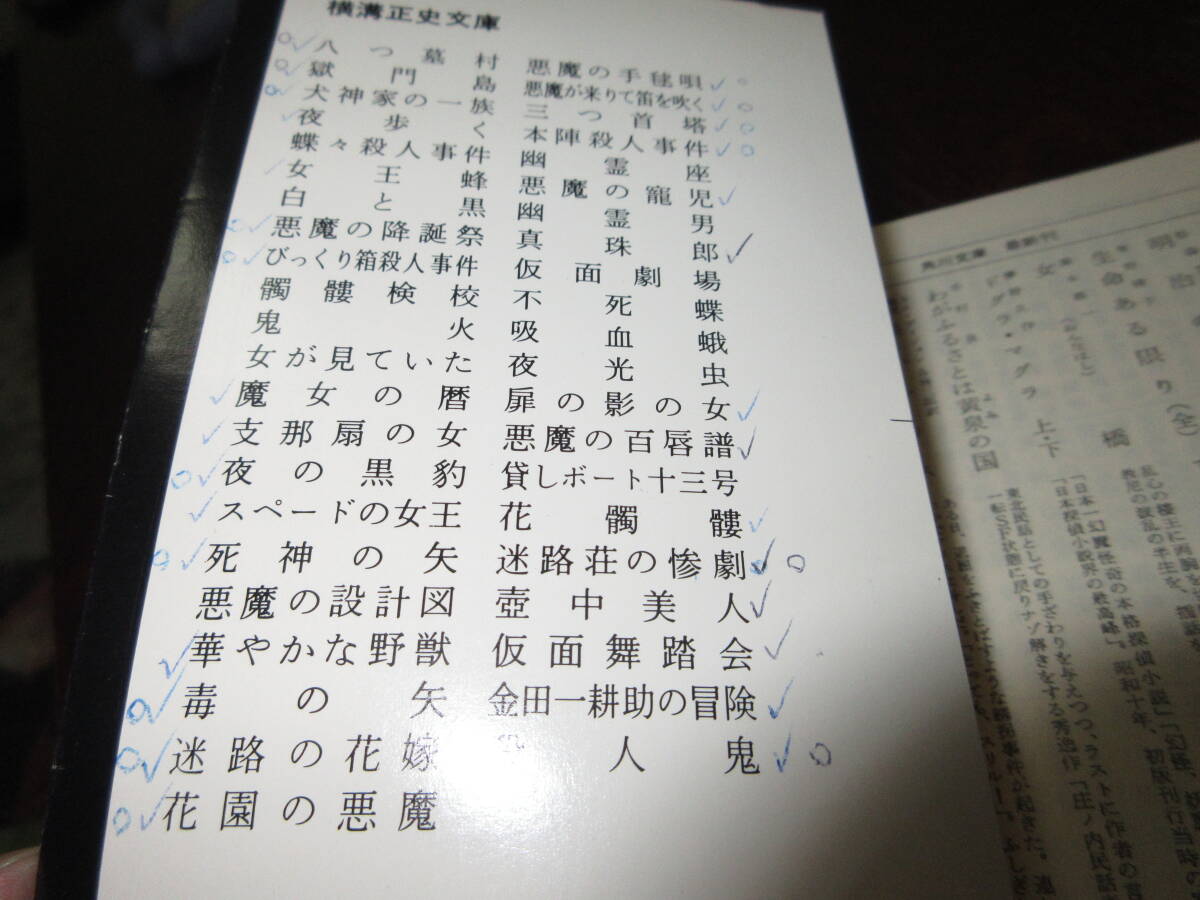 横溝正史文庫
八つ墓村
獄門島
犬神家の一族
夜歩く
蝶々殺人事件
女王蜂
白と黒
悪魔の降誕祭
びっくり箱殺人事件
髑髏検校
鬼火
女が見ていた
魔女の暦
支那扇の女
夜の黒豹
スペードの女王
死神の矢
悪魔の設計図
華やかな野獣
毒の矢
迷路の花嫁
花園の悪魔
悪魔の手毬唄
悪魔が来りて笛を吹く
三つ首塔
本陣殺人事件
幽霊座
悪魔の寵児
幽霊男
真珠郎
仮面劇場
不死蝶
吸血蛾
夜光虫
扉の影の女
悪魔の百唇譜
貸しボート十三号
花髑髏
迷路荘の惨劇
壺中美人
仮面舞踏会
金田一耕助の冒険
人鬼
角川文庫 最新刊
明治
生命ある限り(全)
橋
女
ドグラ・マグラ 上・下
わがふるさとは黄泉の国
乱心の楼主に両腕を
「日本一幻魔怪奇の本格探偵小説」「幻怪、
「日本探偵小説界の最高峰」。昭和十年、初版刊行当時の
東北民話としての手ざわりを与えつつ、ラストに作者の
一転SF状態に戻りナゾ解きをする秀逸作「庄ノ内民話